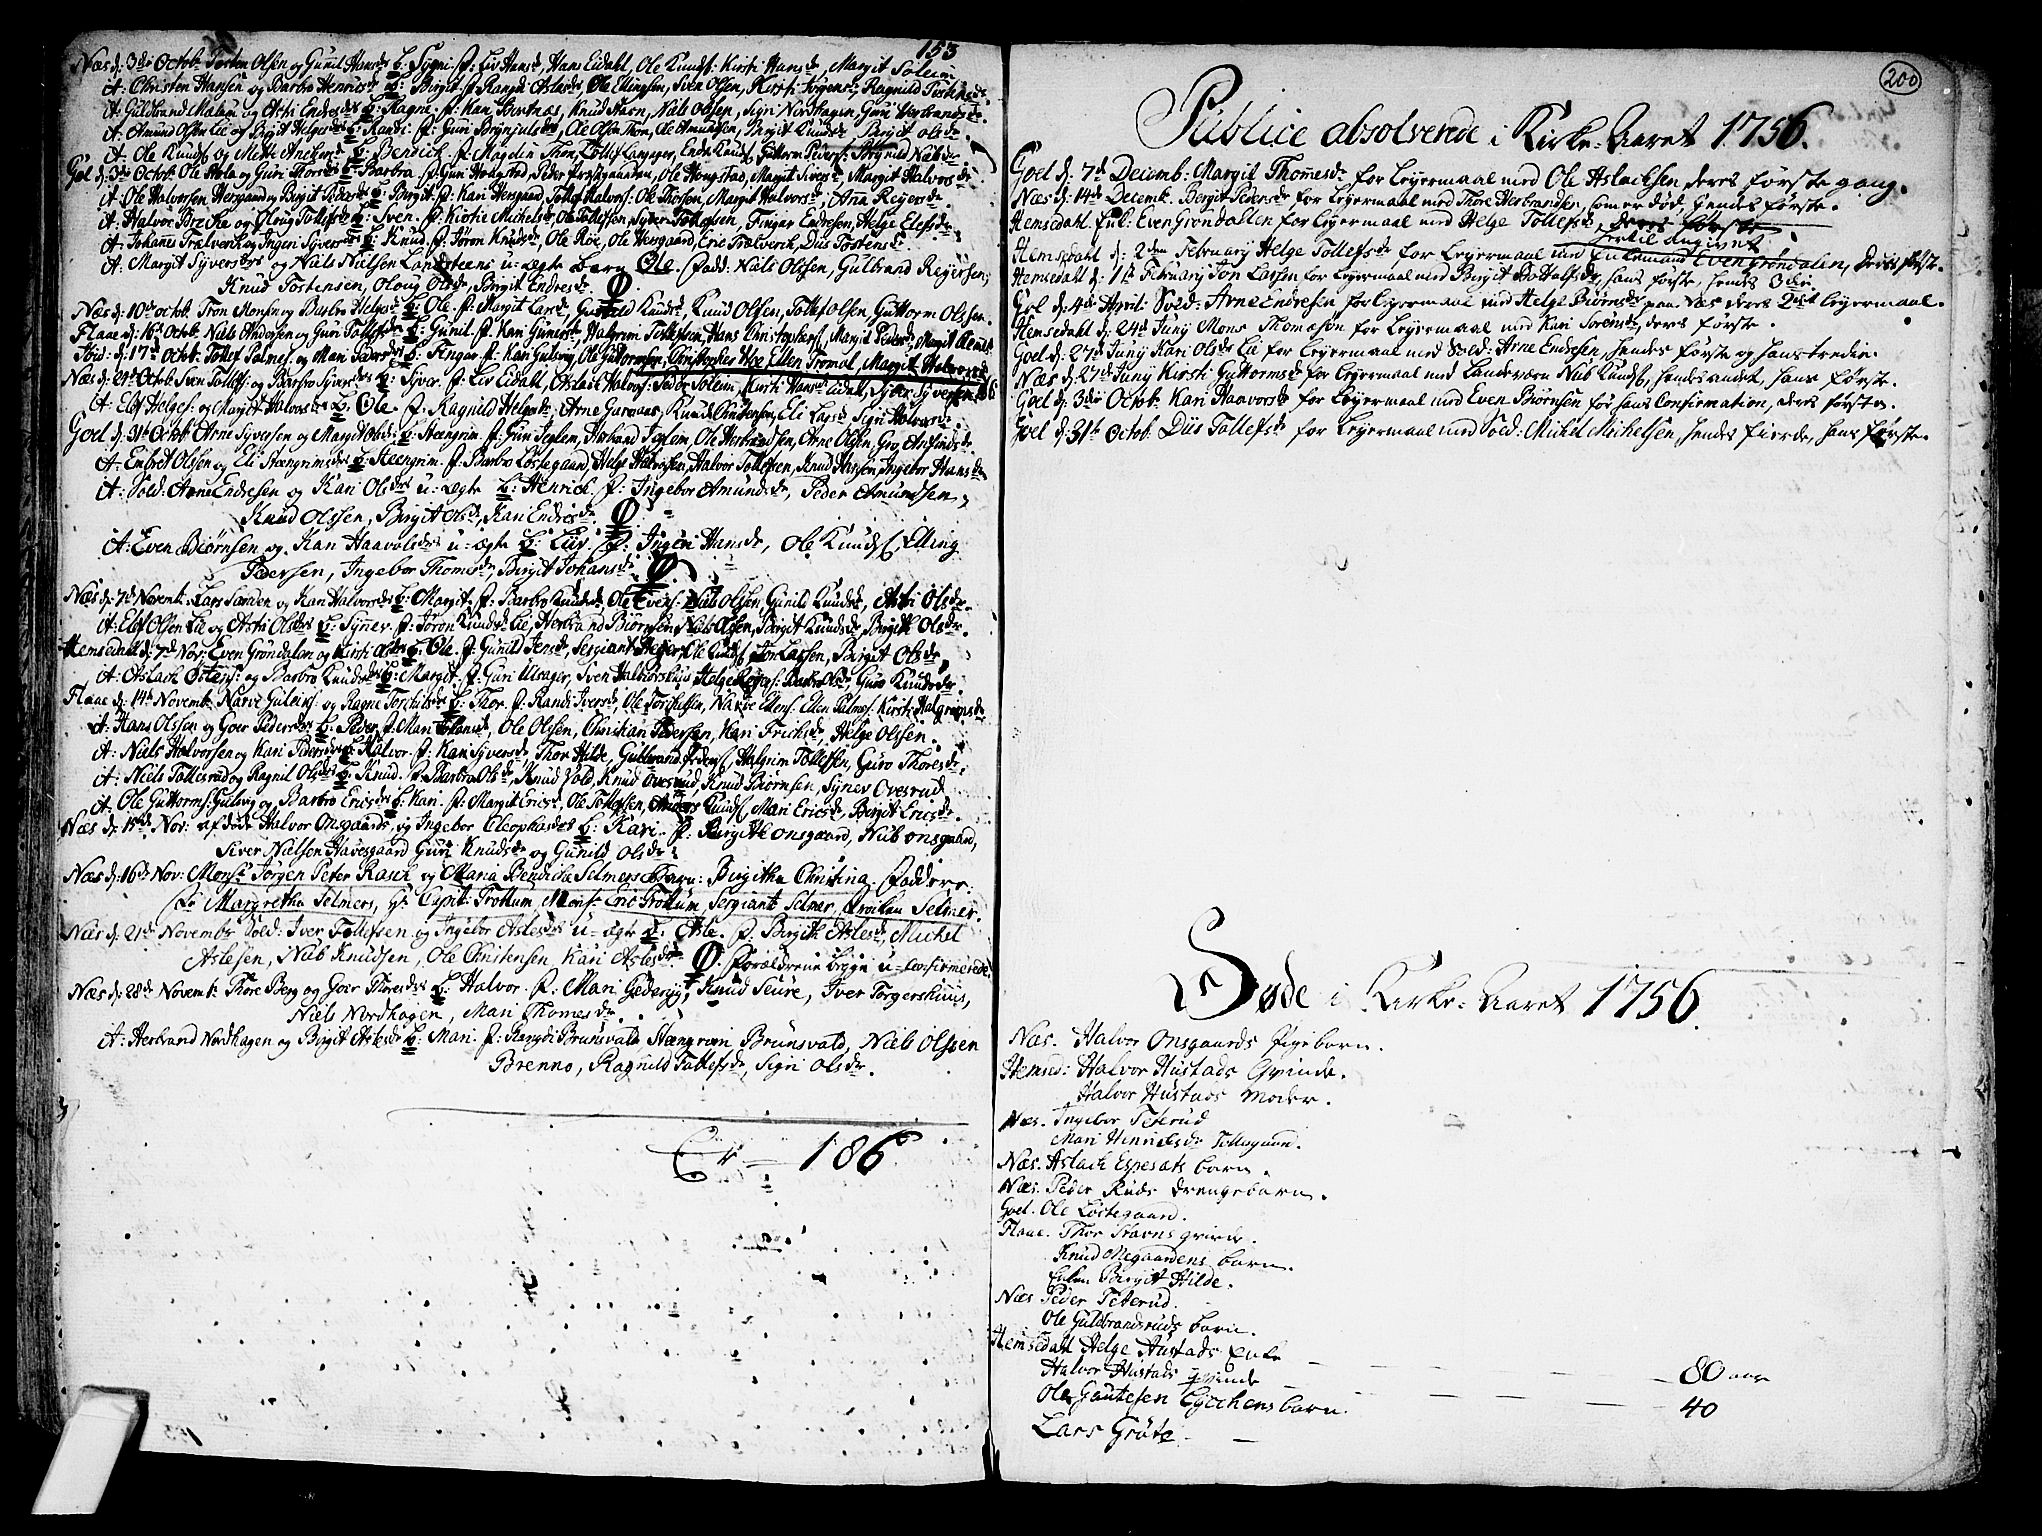 153
Næs d: 3die Octob: Torsten Olsen og Gunil Hansdr b: Sygni. f: Liv Hansdr, Hans Eidahl, Ole Knuds: Kirsti Hansdr, Margit Solem.
It: Christen Hansen og Barbro Henricsdr b: Birgit. f: Randi Aslesdr, Ole Ellingsen, Sven Olsen, Kirsti Torgersdr Ragnild Tostensdr.
It: Guldbrand Mælum og Astri Endresdr b: Ragne. f: Kari Bortnæs, Knud Haen, Niels Olssen, Sigri Nordhagen, Guri Herbrandsdr.
It: Amund Olsen Lie og Birgit Helgesdr b: Randi. f: Guri Brynjulsdr, Ole Olsen Thon, Ole Amundsen, Bergit Knudsdr Bergit Olsdr.
It: Ole Knuds og Mette Andersdr b: Bendick. f: Magdln Thon, Tollef Langeger, Endre Knuds Guttorm Peders: Ragnild Nielsdr.
Gol d: 3die Octob: Ole Hola og Guri Thoresdr b: Barbra. f: Guri Hougstad, Peder Prestgaarden, Ole Hougstad, Margit Siversdr Margit Halvorsdr
It: Ole Halvorsen Hersgaard og Birgit Pedersdr b: Birgit. f: Kari Hersgaard, Tollef Halvors: Ole Thorsen, Margit Halvorsdr, Ana Reyersdr.
It: Halvor Brecke og Oloug Tollefsdr b: Sven. f: Kirstie Michelsdr Ole Tollefsen Syver Tollefsen, Fingar Endresen, Helge Elefsdr.
It: Johanes Trælverck og Ingeri Syversdr b: Knud. f: Jøron Knudsdr, Ole Röe, Ole Hersgaard, Eric Trælverck, Düs Tostensdr
It: Margit Syversdr og Niels Nielsen Landsteens u-ægte barn Ole. Fadd. Niels Olssen, Gulbrand Regersen,
Knud Tostensen, Oloug Olsdr Birgit Endresdr.
Næs d: 10de octob: Tron Monsen og Barbro Helgesdr b: Ole. f: Margit Larsdr, Gunild Knudsdr, Knud Olsen, Tollef Olsen, Guttorm Olssen.
Flaae d: 16de Octob: Niels Andersen og Guri Tollefsdr b: Gunil. f: Kari Gunersdr, Halgrim Tollefsen, Hans Christophers, Margit Pedersdr Margit Olsdr
Ibid: d: 17de Octob: Tollef Palmes: og Mari Pedersdr b: Fingar. f: Kari Gulsvig, Ole Guttormsen, Christopher Moe, Ellen Tromol, Margit Halvorsdr
Næs d: 24de Octob: Sven Tollefs: og Barbro Syversdr b: Syver. f: Liv Eidahl, Aslack Halvors: Peder Solem, Kirsti Hansdr Eidal, Syver Syversen.
It: Elef Helges: og Margit Halvorsdr b: Ole. f: Ragnild Helgesdr, Arne Garnaas, Knud Christensen, Eli Larsdr Sigri Halvorsdr.
Goel d: 31te Octob: Arne Syversen og Margit Olsdr b: Steengrim. f: Guri Jeglem, Herbrand Jeglem, Ole Herbrandsen, Arne Olsen, Gro Arfindsdr.
It: Endret Olssen og Eli Steengrimsdr b: Steengrim. f: Barbro Löstegaard, Helge Halvorsen, Halvor Tollefsen, Knud Hansen, Ingebor Hansdr
It: Sold: Arne Endresen og Kari Olsdr u-ægte b: Henrick. f: Ingebor Amundsdr, Peder Amundsen,
Knud Olssen, Birgit Olsdr, Kari Endresdr.
It: Even Biörnsen og Kari Haavolsdr u-ægte b: Liv. f: Ingeri Hansdr, Ole Knuds, Elling
Pedersen, Ingebor Thomesdr, Birgit Johansdr.
Næs d: 7de Novemb: Lars Sanden og Kari Halvorsdr b: Margit. f: Barbro Knudsdr, Ole Evens: Niels Olssen, Gunild Knudsdr, Astri Olsdr.
It: Elef Olsen Lie og Astri Olsdr b: Synnev. f: Jøron Knudsdr Lie, Herbrand Biörnsen, Niels Olsen, Birgit Knudsdr, Birgith Olsdr.
Hemsedal d: 7de Nov: Even Gröndalen og Kirsti Olsdr b: Ole. f: Gunild Jensdr, Sergiant Heyer, Ole Knuds, Jon Larsen, Birgit Olsdr,
It: Aslach Ostens: og Barbro Knudsdr b: Margit. f: Guri Ulsager, Sven Halvorshuus, Helge Reyers: Barbro Olsdr, Guro Knudsdr.
Flaae d: 14de Novemb: Narve Guleiks: og Ragne Torchilsdr b: Thor. f: Randi Iversdr, Ole Torchelsen, Narve Ellens: Ellen Palmes: Kirsti Halgrimsdr
It: Hans Olssen og Goer Pedersdr b: Peder. f: Mari Johansdr, Ole Olssen, Christian Pedersen, Kari Frichsdr, Helge Olssen.
It: Niels Halvorsen og Kari Pedersdr b: Halvor. f: Kari Syversdr, Thor Hilde, Gulbrand Peders, Halgrim Tollefsen, Guro Thoresdr.
It: Niels Tollesrud og Ragnil Olsdr b: Knud. f: Barbro Olsdr, Knud Vold, Knud Ovesrud, Knud Biörnsen, Synev Ovesrud
It: Ole Guttorms: Gulsvig og Barbro Ericsdr b: Kari. f: Margit Ericsdr, Ole Tollefsen, Anders Knuds, Mari Ericsdr, Birgit Ericsdr.
Næs d: 15de Nov: afdøde Halvor Onsgaards og Ingebor Cleophasdr b: Kari. f: Birgith Onsgaard, Niels Onsgaard,
Siver Nielsen Havesgaard Guri Knudsdr og Gunild Olsdr.
Næs d: 16de Nov: Monsr Jörgen Peter Rasch og Maria Bendicta Selmers Barn: Birgitha Christina. Faddere:
Fr: Margretha Selmers, Hr Capit: Frotium, Mons: Eric Frotium, Sergiant Selmer, Fröiken Selmer.
Næs d: 21de Novembr Sold: Iver Tollefsen og Ingebor Aslesdr u-ægte b: Asle. f: Birgith Aslesdr, Michel
Aslesen, Niels Knudsen, Ole Christensen, Kari Aslesdr. Forældrene begge u-confirmerede.
Næs d: 28de Novemb: Thore Berg og Goer Thoresdr b: Halvor. f: Mari Gederøj, Knud Seure, Iver Torgershuus,
Niels Nordhagen, Mari Thomesdr.
It: Herbrand Nordhagen og Birgit Aslesdr b: Mari. f: Rangdi Brunsvald Steengrim Brunsvald, Niels Olssen
Brenno, Ragnild Tollefsdr, Sigri Olsdr.
Er = 186
200
Publice absolverede i Kirke-Aaret 1756.
Goel d: 7de Decemb: Margit Thomesdr for Leyermaal med Ole Aslachsen, deres første gang.
Næs d: 14de Decemb. Bergit Pedersdr for Leyermaal med Thore Herbrandsen, som er død, hendes første.
Hemsedahl Eul: Even Gröndallen for Leyermaal med Helge Tollefsdr, deres første.
Hemsedahl d: 2den February Helge Tollefsdr for Leyermaal med Enkemand Even Gröndalen, deres første.
Hemsedal d: 1ste February Jon Larsen for Leyermaal med Birgit Bottolfsdr, hans første, hendes 3die.
Gol d: 4de April: Sold: Arne Endresen for Leyermaal med Helge Biørnsdr paa Næs deres 2det Leyermaal.
Hemsedahl d: 24de Juny Mons Thomæsen for Leyermaal med Kari Sorensdr, deres første.
Goel d: 27de Juny Kari Olsdr Lie for Leyermaal med Sold: Arne Endresen, hendes første og hans tredie.
Næs d: 27de Juny Kirsti Guttormsdr for Leyermaal med Landevern Niels Knuds, hendes andet, hans første.
Goel d: 3die Octob: Kari Haavorsdr for Leyermaal med Even Biørnsen for hans Confirmation, deres første.
Goel d: 31te Octob: Düs Tollefsdr for Leyermaal med Sold: Michel Michelsen, hendes fierde, hans første.
Døde i Kirke-Aaret 1756.
Næs. Halvor Onsgaards Pigebarn.
Hemsed: Halvor Hustads Qvinde.
Halvor Hustads Moder.
Næs. Ingebor Teterud
Mari Henricksdr Tollesgaard.
Næs. Aslach Espesæts barn.
Næs. Peder Ruds drengebarn.
Goel. Ole Löstegaard.
Flaae. Thor Stavns qvinde.
Knud Megaardens barn.
Enken Birgit Hilde.
Næs Peder Teterud.
Ole Guldbrandsruds barn.
Hemsedahl Helge Hustads Enke
Halvor Hustads qvinde 80 aar
Ole Gautesen Eychens barn. 40
Lars Gröte.